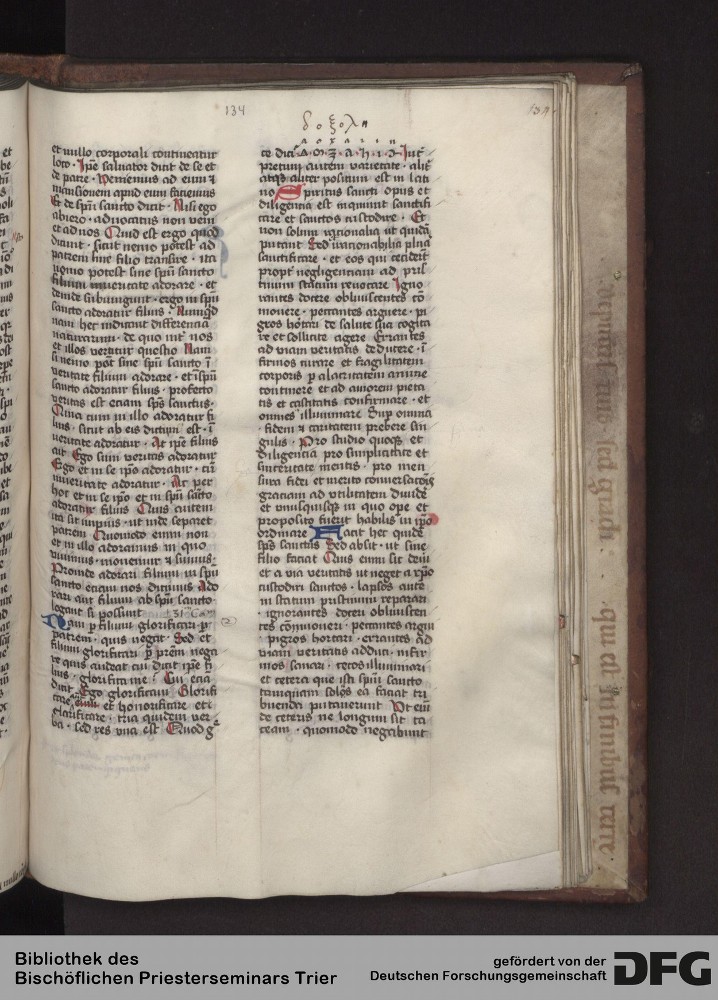 134
δοξολη
et nullo corporali contineatur
loco · Ipe saluator dicit de se et
de patre · Veniemus ad eum ⁊
mansionem apud eum faciemus
Et de spu sancto dicit · Nisi ego
abiero · aduocatus non veni
et ad nos Quid est ergo quod
dicunt · sicut nemo potest ad
patrem sine filio transire · ita
nemo potest sine spu sancto
filium in ueritate adorare · et
deinde subiungunt · ergo in spu
sancto adoratur filius · Numqd
nam hec indicant differencia
naturarum · de quo int nos
et illos vertitur questio Nam
si nemo pot sine spu sancto i
veritate filium adorare · et i spu
sancto adoratur filius · profecto
veritas est eciam sps sanctus ·
Quia cum in illo adoratur fi
lius · sicut ab eis dictum est · i
ueritate adoratur · At ipe filius
ait Ego sum veritas adoratur
Ergo et in se ipo adoratur · cu
in ueritate adoratur · Ac per
hoc et in se ipo et in spu sacto
adoratur filius Quis autem
ita sit impius · ut inde separet
patrem Quomodo enim non
et in illo adoramus in quo
viuimus · mouemur ⁊ sumus ·
Proinde adorari filium in spu
sancto eciam nos dicimus Ado
rari aut filium ab spu sancto
legant si possunt
Qam p filium glorificari
patrem · quis negat · Sed et
filium glorificari p prem nega
re quis audeat cui dicit ipe fi
lius · glorifica me · Cui eciam
dicit Ego glorificaui Glorifi
care enim et honorificare et
clarificare · tria quidem ver
ba · sed res vna est Quod g
ce dicit
pretum autem varietate · alit
atqs aliter positum est in lati
no Spiritus sancti opus et
diligencia est inquiunt sanctifi
care et sanctos custodire · Et
non solum racionalia ut quida
putant Sed irracionabilia plna
sanctificare · et eos qui cecidert
propt negligenciam ad pris
tinum statum reuocare Igno
rantes docere obliuiscentes co
monere · peccantes arguere · pi
gros hortari de salute sua cogita
re et sollicite agere Errantes
ad viam veritatis deducere · i
firmos curare et fragilitatem
corporis p alacritatem anime
continere et ad amorem pieta
tis et castitatis confirmare · et
omnes illuminare Sup omnia
· fidem ⁊ caritatem prebere sin
gulis · Pro studio quoqs et
diligencia pro simplicitate et
sinceritate mentis · pro men
sura fidei et merito conuersacois
graciam ad vtilitatem diuide
et vnumquemqs in quo ope et
proposito fuerit habilis in ipo
ordinare Facit hec quide
sps sanctus Sed absit · ut sine
filio faciat Quis enim sic deui
et a via veritatis ut neget a xpo
custodiri sanctos · lapsos ante
in statum pristinum reparari
· ignorantes doceri obliuiscen
tes comoneri · peccantes argui
· pigros hortari · errantes ad
viam veritatis adduci · infir
mos sanari · cecos illuminari
et cetera que isti spui sancto
tamquam solus ea faciat tri
buenda putauerunt Vt eim
de ceteris ne longum sit ta
ceam · quomodo negabunt
Bibliothek des
Bischöflichen Priesterseminars Trier
gefördert von der
Deutschen Forschungsgemeinschaft
DFG